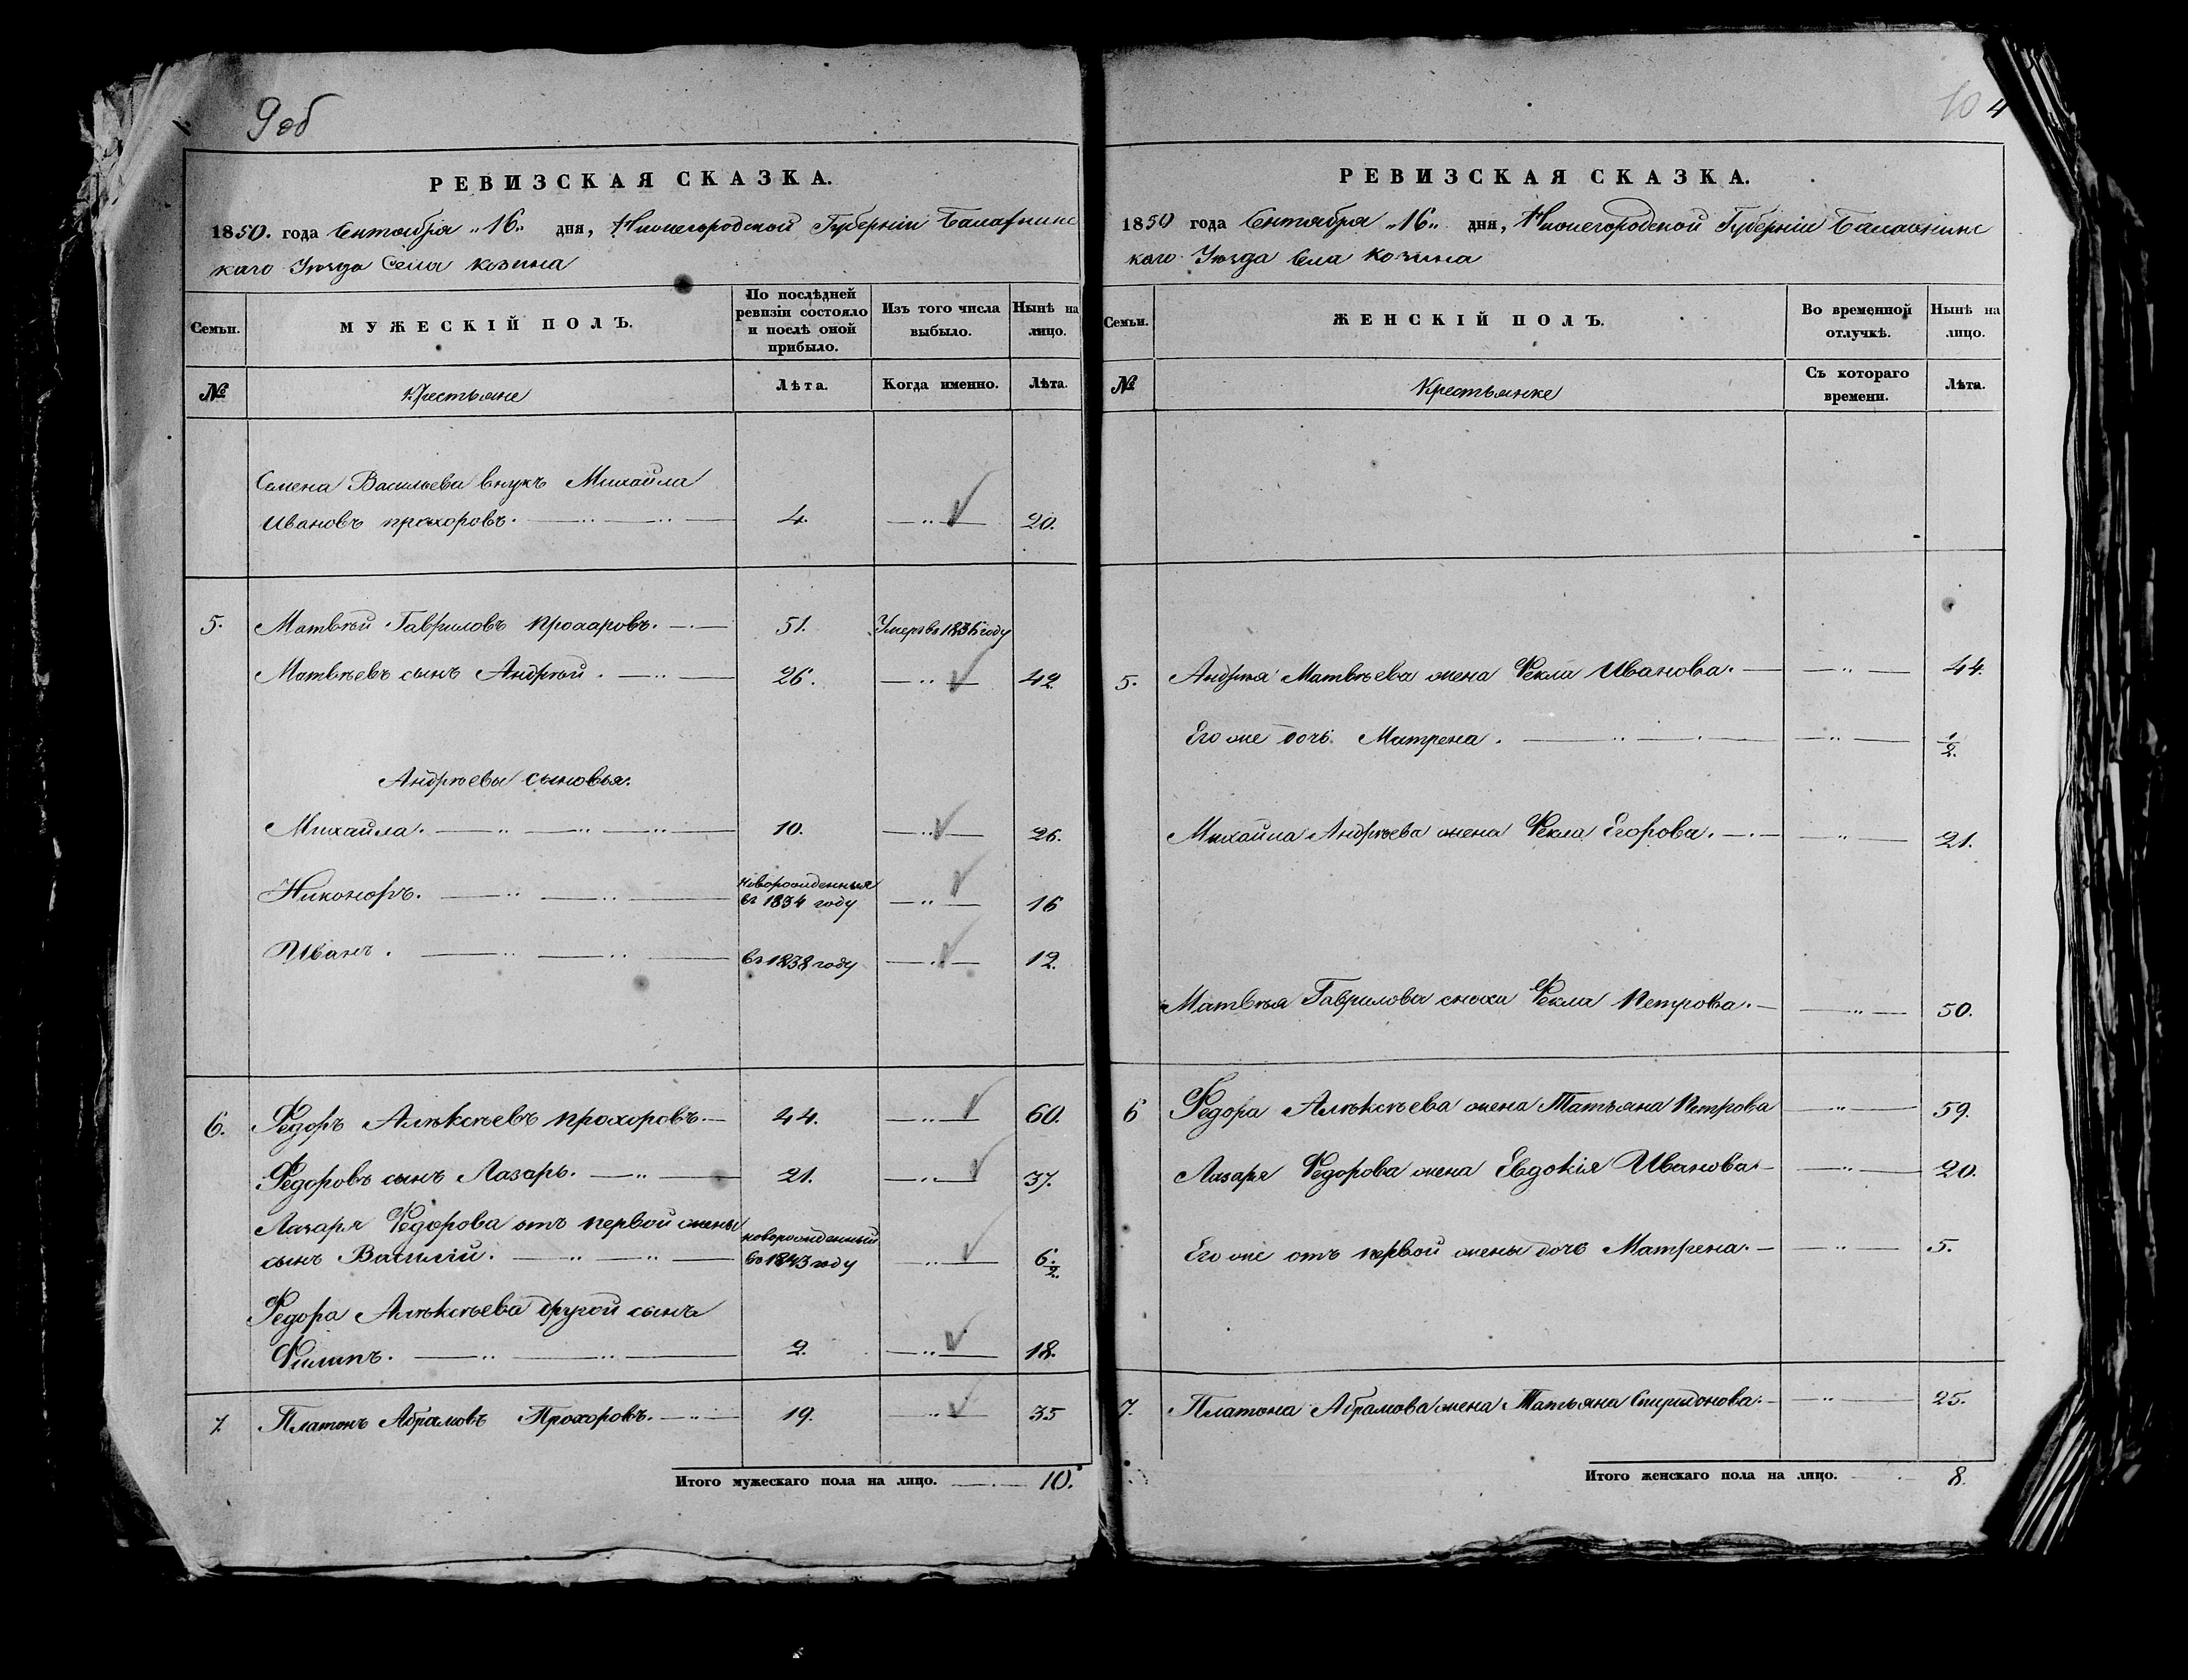 9 об
РЕВИЗСКАЯ СКАЗКА.
1850. года Сентября „16„ дня, Нижегородской Губерніи Балахнинс
каго Уѣзда Села Козина
Семьи. МУЖЕСКІЙ ПОЛЪ. По послѣдней ревизіи состояло и послѣ оной прибыло. Изъ того числа выбыло. Нынѣ на лицо.
№ Крестьяне Лѣта. Когда именно. Лѣта.
Семена Васильева внукъ Михайла
Ивановъ прохоровъ. 4. 20.
5. Матвѣй Гавриловъ Прохаровъ. 51. Умеръ въ году
Матвѣевъ сынъ Андрѣй. 26. 42.
Андрѣевы сыновья.
Михайла. 10. 26.
Никоноръ. новорожденныя въ 1834 году 16
Иванъ. въ 1838 году 12.
6. Федоръ Алѣксѣевъ прохоровъ. 44. 60.
Федоровъ сынъ Лазарь. 21. 37.
Лазаря Федорова отъ первой жены
сынъ Василій. новорожденный въ 1843 году 6 1/2.
Федора Алѣксѣева другой сынъ
Филипъ. 2. 18.
7. Платонъ Абрамовъ Прохоровъ. 19. 35
Итого мужескаго пола на лицо. 10.
10 4
РЕВИЗСКАЯ СКАЗКА.
1850 года Сентября „16„ дня, Нижегородской Губерніи Балахнинс
каго Уѣзда Села Козина
Семьи. ЖЕНСКІЙ ПОЛЪ. Во временной отлучкѣ. Нынѣ на лицо.
№ Крестьянке Съ котораго времени. Лѣта.
5. Андрѣя Матвѣева жена Фекла Иванова. 44.
Его же дочь Матрена. 1/2.
Михайла Андрѣева жена Фекла Егорова. 21.
Матвѣя Гаврилова сноха Фекла Петрова. 50.
6 Федора Алѣксѣева жена Татьяна Петрова 59.
Лазаря Федорова жена Евдокія Иванова 20.
Его же отъ первой жены дочь Матрена. 5.
7. Платона Абрамова жена Татьяна Спиридонова. 25.
Итого женскаго пола на лицо. 8.